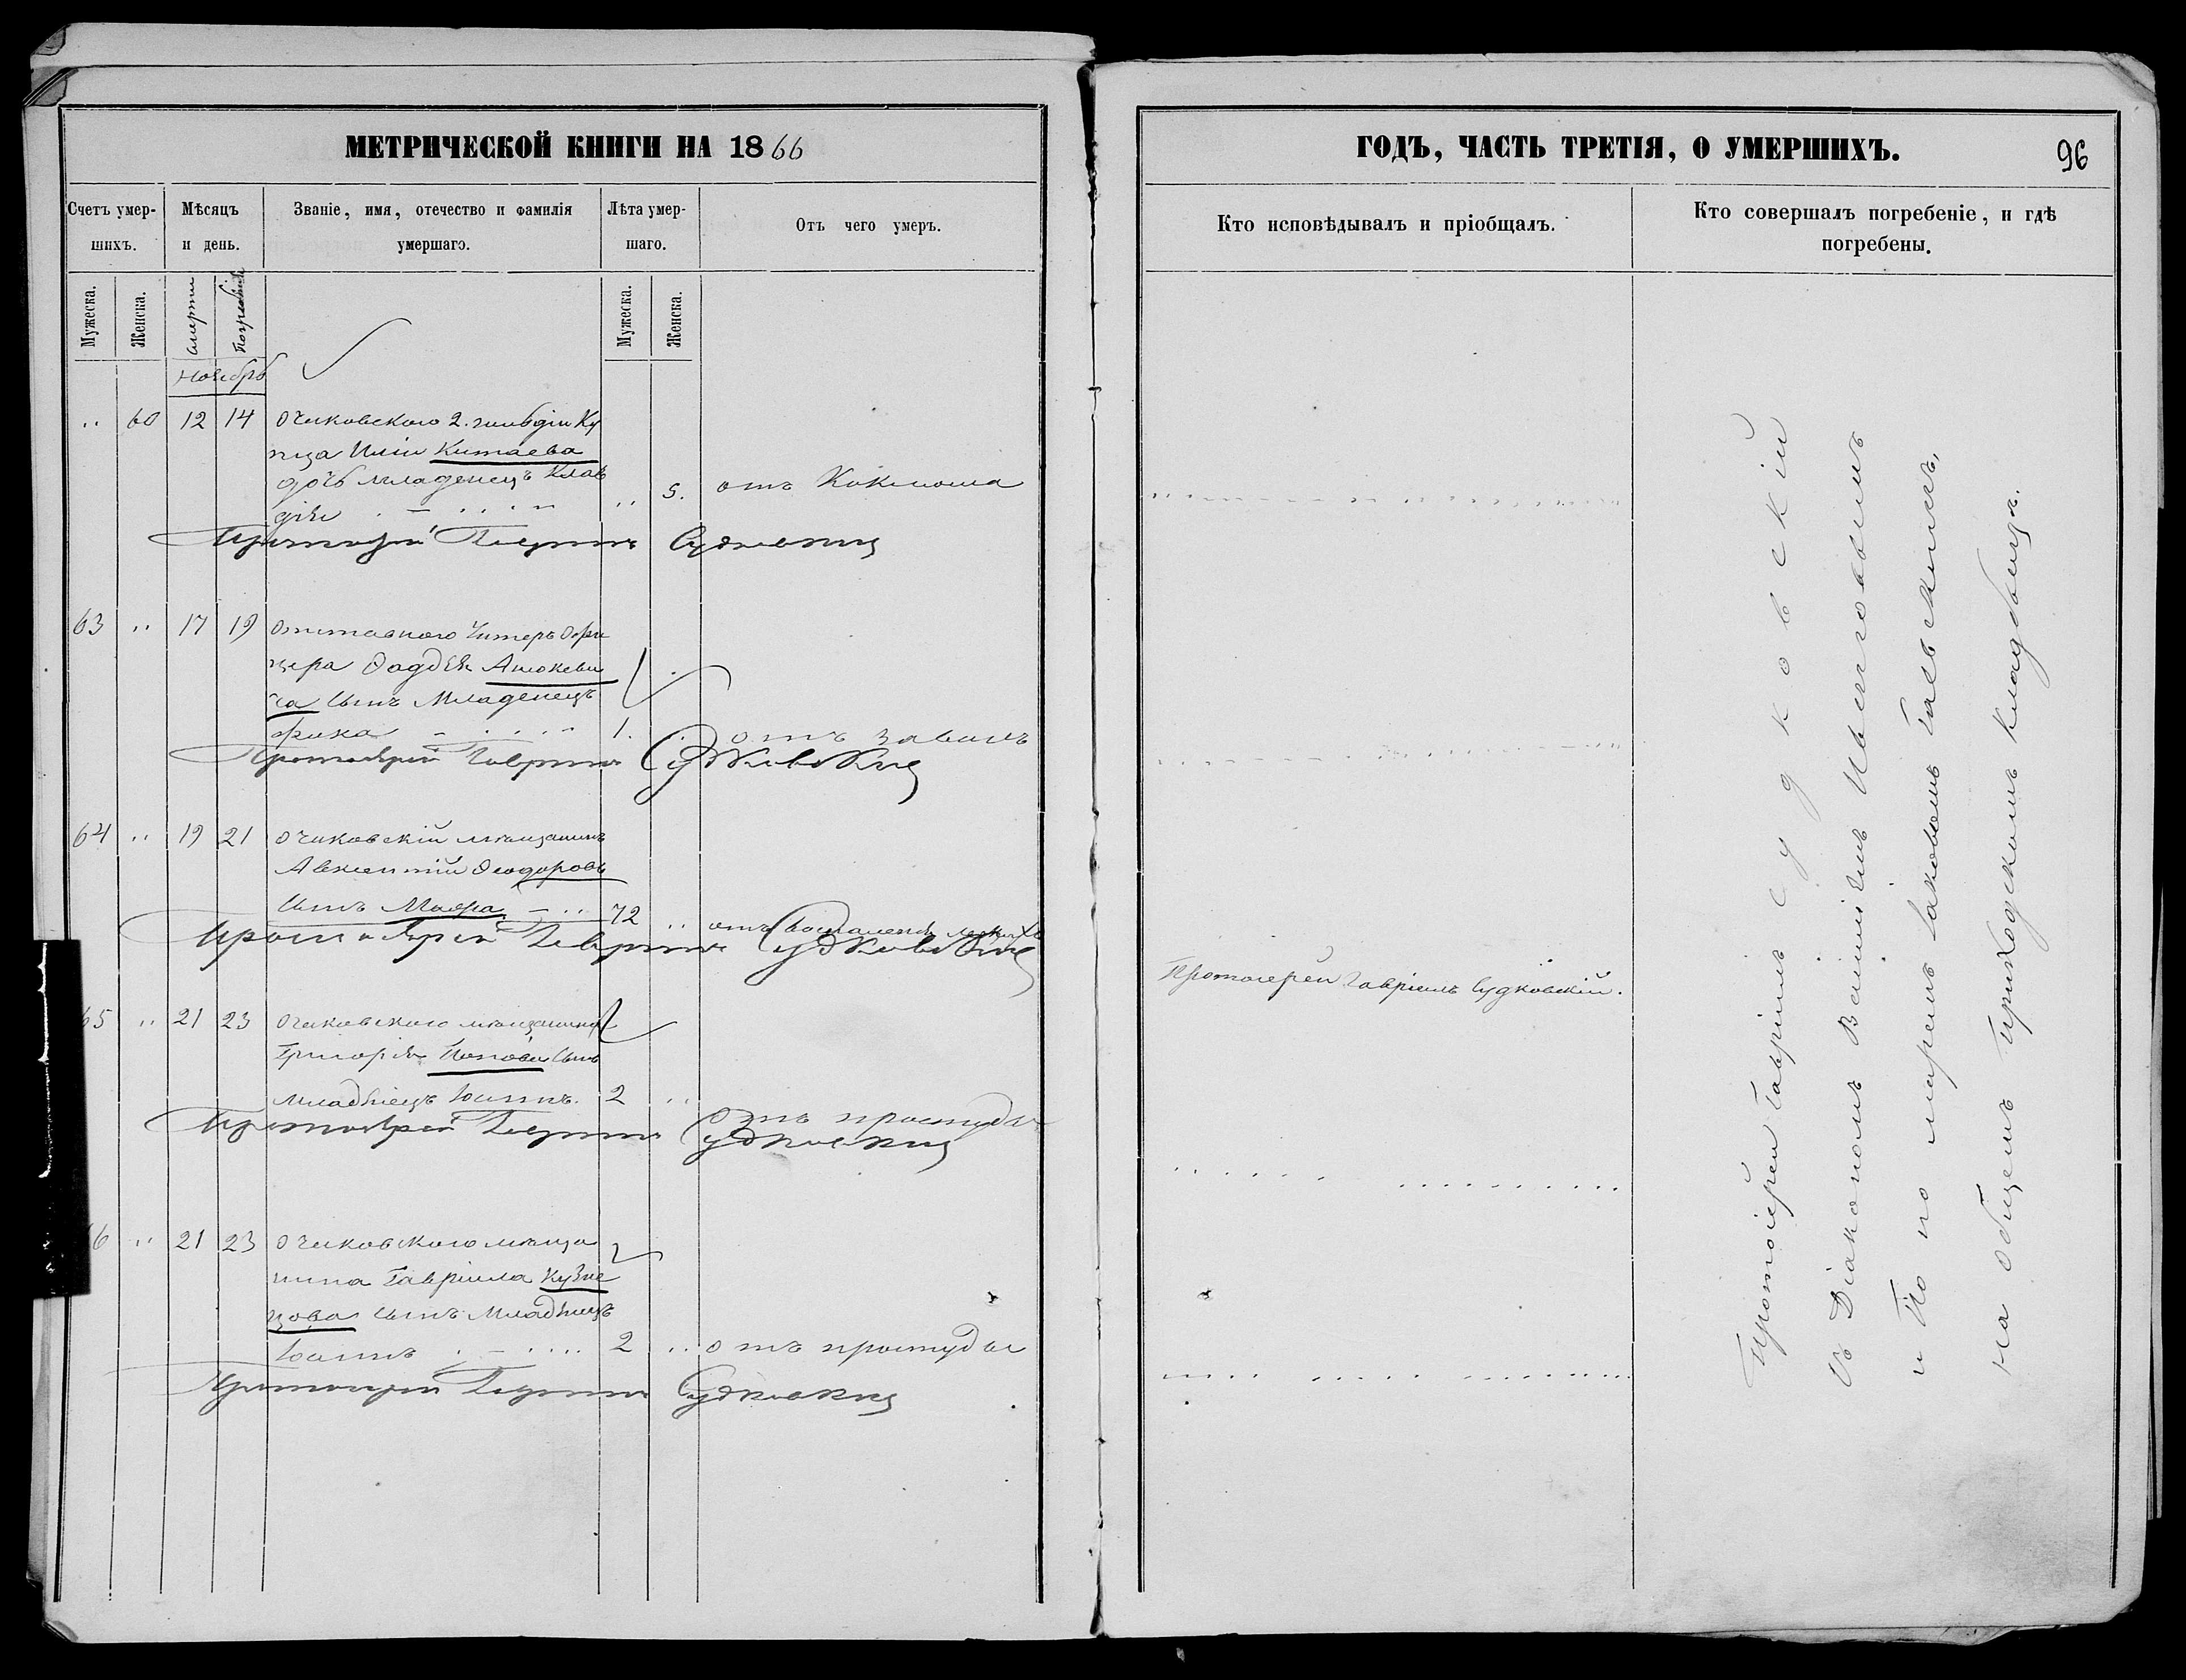 МЕТРИЧЕСКОЙ КНИГИ НА 1866
Счетъ умер-
шихъ.
Мѣсяцъ
и день.
Званіе, имя, отечество и фамилія
умершаго.
Лѣта умер-
шаго.
Отъ чего умеръ.
Мужеска.
Женска.
смерти
погребенія
Мужеска.
Женска.
Ноябрь
„ 60 12 14 Очаковскаго 2. гильдіи Ку
пца Иліи Китаева
дочь младенецъ Клав
дія „ 5. отъ Коклюша
Протоіерей Гавріилъ Судковскій
63 „ 17 19 Отставного Унтеръ Офи
цера Фадѣя
ча сынъ Младенецъ
1. отъ
Протоіерей Гавріилъ Судковскій
64 „ 19 21 Очаковскій мѣщанинъ
Авксентій Феодоровъ
сынъ 72 „ отъ воспаленія легкихъ
Протоіерей Гавріилъ Судковскій
65 „ 21 23 Очаковскаго мѣщанина
Григорія Попова сынъ
младенецъ Іоаннъ. 2 „
отъ простуды
Протоіерей Гавріилъ Судковскій
66 „ 21 23 Очаковскаго мѣща
нина Гавріила Кузне
цова сынъ Младенецъ
Іоаннъ 2 „ отъ простуды
Протоіерей Гавріилъ Судковскій
ГОДЪ, ЧАСТЬ ТРЕТІЯ, О УМЕРШИХЪ.
96
Кто исповѣдывалъ и пріобщалъ.
Кто совершалъ погребеніе, и гдѣ
погребены.
Протоіерей Гавріилъ Судковскій.
Протоіерей Гавріилъ Судковскій
съ Діакономъ Василіемъ
и По но маремъ Іаковомъ Гаевскимъ,
на общемъ приходскомъ кладбищѣ.